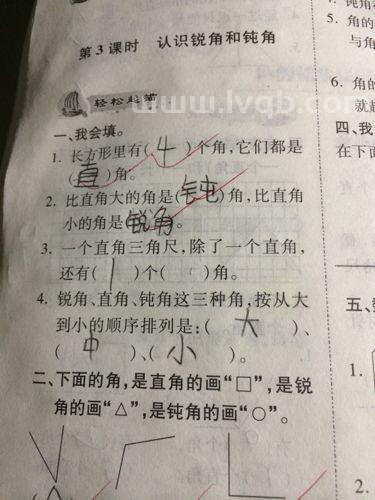 第3课时 认识锐角和钝角
轻松起笔
www.lvqb.com
一、我会填。
1. 长方形里有( 4 )个角,它们都是
( 直 )角。
2. 比直角大的角是( 钝 )角,比直角
小的角是(锐角)。
3. 一个直角三角尺,除了一个直角,
还有( 1 )个( )角。
4. 锐角、直角、钝角这三种角,按从大
到小的顺序排列是:( 大 )、
( 中 )、( 小 )。
二、下面的角,是直角的画“□”,是锐
角的画“△”,是钝角的画“○”。
5. 角的
与角
6. 角的
就越
四、我
在下面
五、
1.
2.